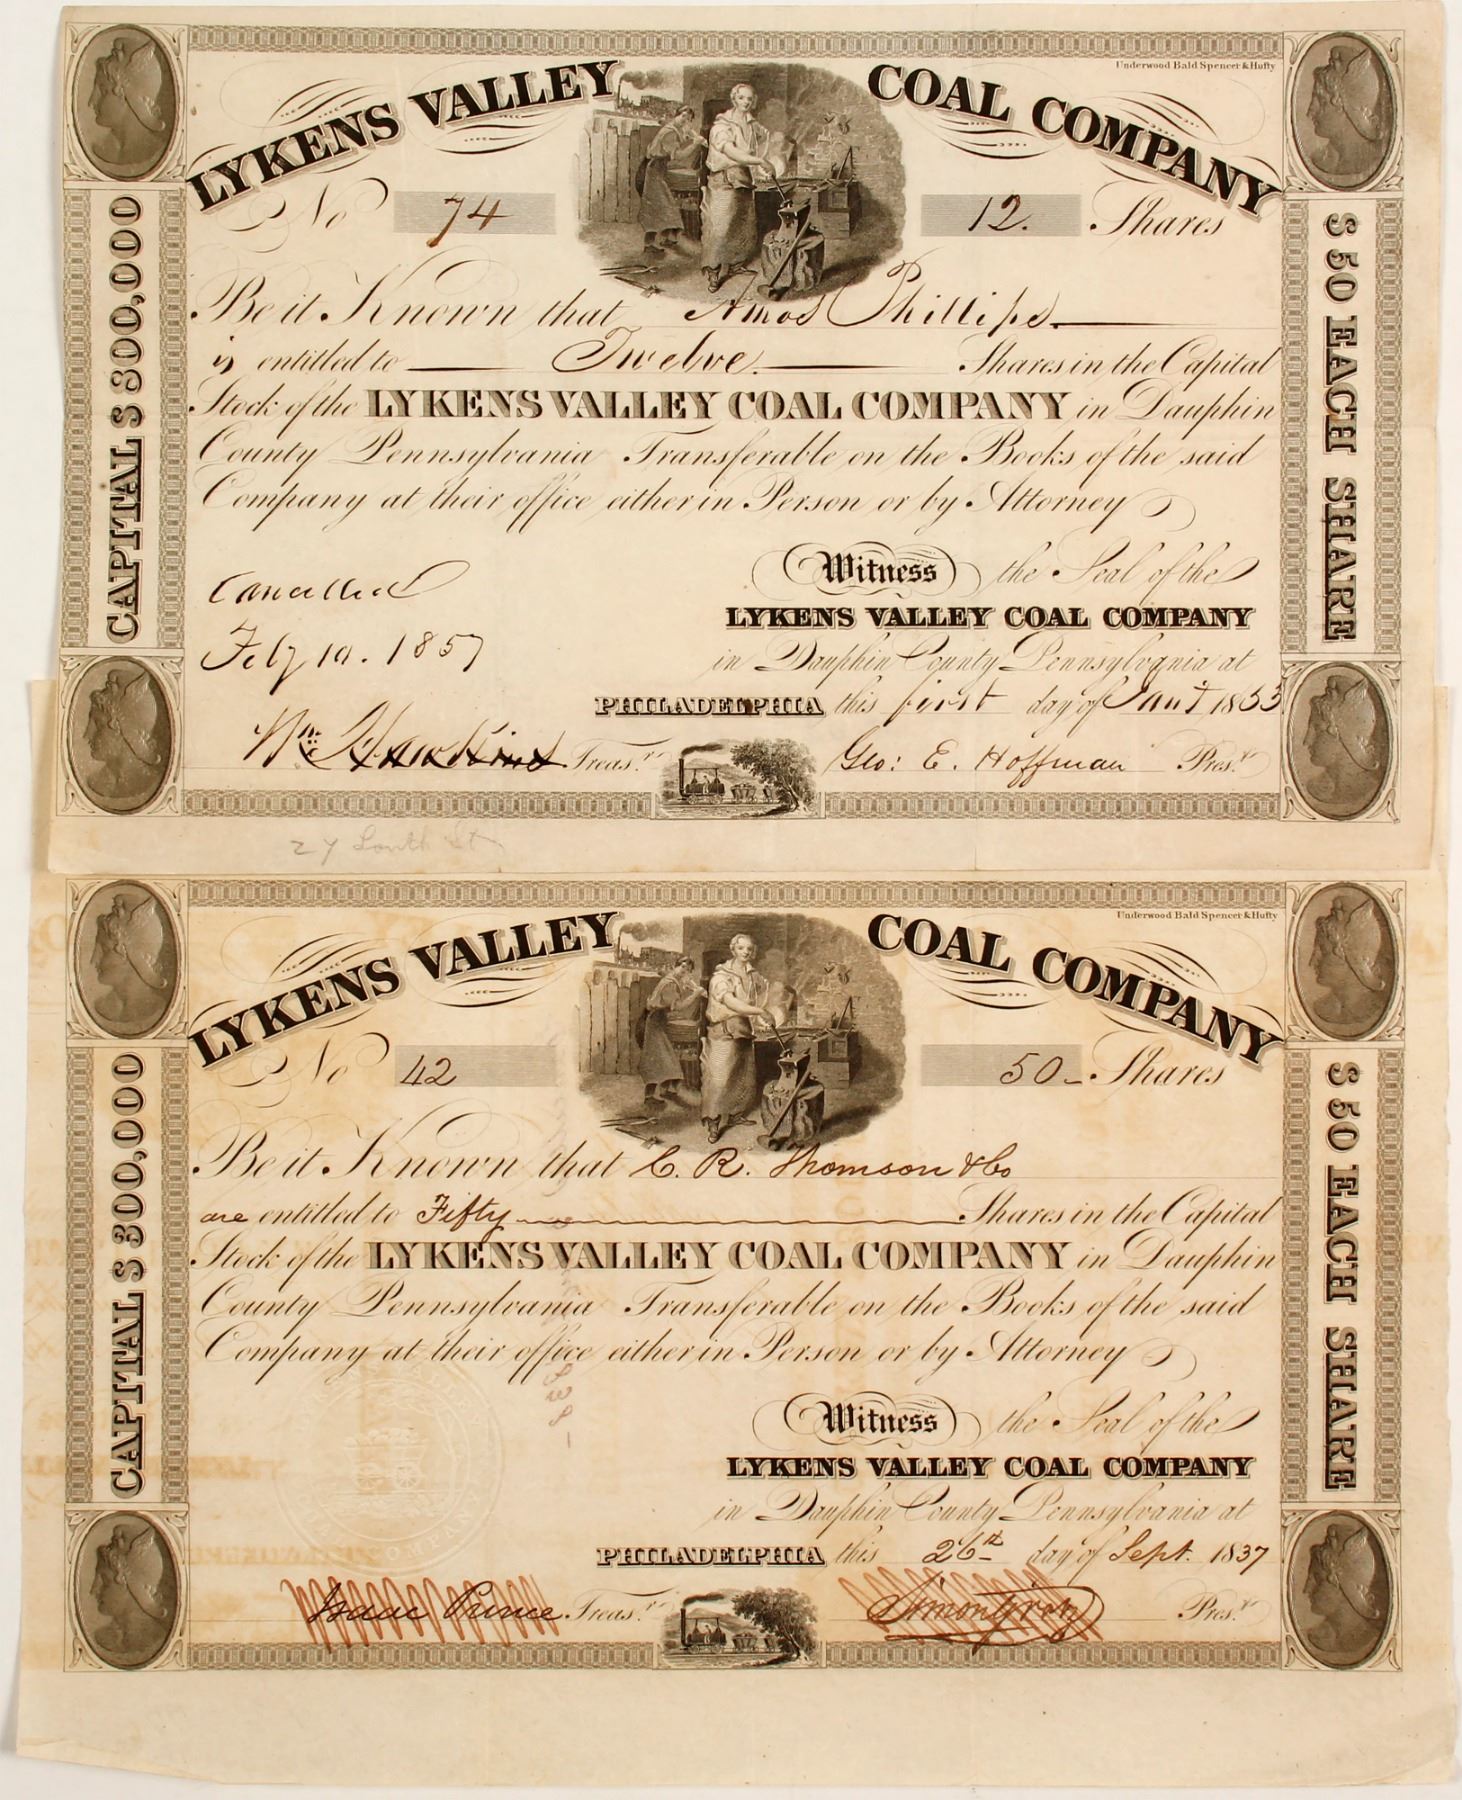 Underwood Bald Spencer & Hufty
LYKENS VALLEY COAL COMPANY
CAPITAL $ 300,000
$ 50 EACH SHARE
No 74 12. Shares
Be it Known that Amos Phillips
is entitled to Twelve Shares in the Capital
Stock of the LYKENS VALLEY COAL COMPANY in Dauphin
County Pennsylvania Transferable on the Books of the said
Company at their office either in Person or by Attorney
Witness the Seal of the
LYKENS VALLEY COAL COMPANY
in Dauphin County Pennsylvania at
PHILADELPHIA this first day of Jany 1853
Cancelled
Feby 10. 1857
Wm Hawkins Treasr.
Geo: E. Hoffman Prest.
27 South St
Underwood Bald Spencer & Hufty
LYKENS VALLEY COAL COMPANY
CAPITAL $ 300,000
$ 50 EACH SHARE
No 42 50 Shares
Be it Known that C. R. Thomson & Co
are entitled to Fifty Shares in the Capital
Stock of the LYKENS VALLEY COAL COMPANY in Dauphin
County Pennsylvania Transferable on the Books of the said
Company at their office either in Person or by Attorney
Witness the Seal of the
LYKENS VALLEY COAL COMPANY
in Dauphin County Pennsylvania at
PHILADELPHIA this 26th day of Sept. 1837
Isaac Prince Treasr.
Simon Gratz Prest.